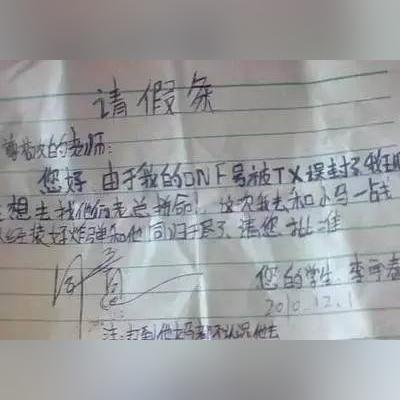 请假条
尊敬的老师:
您好 由于我的DNF号被TX误封了 我现
想去找他们老总拼命, 这次我去和小马一战
经装好炸弹和他同归于尽了 请您批准
同意
您的学生 李宇春
2010.12.1
注:打到他妈都不认识他去